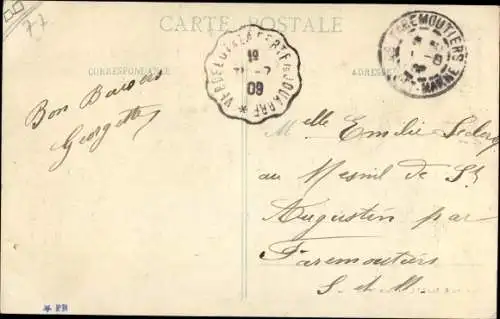 77
CARTE POSTALE
CORRESPONDANCE
ADRESSE
VERDELOT A LA FERTE-S-JOUARRE
09
FAREMOUTIERS
Bon Baisers
Georgette
Melle Emilie Leclerq
au Mesnil de St
Augustin par
Faremoutiers
S. et M
* PH